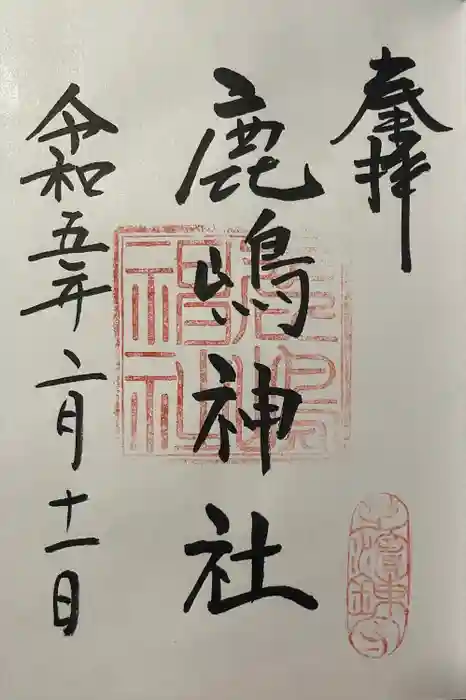 奉拝
鹿嶋神社
令和五年六月十一日